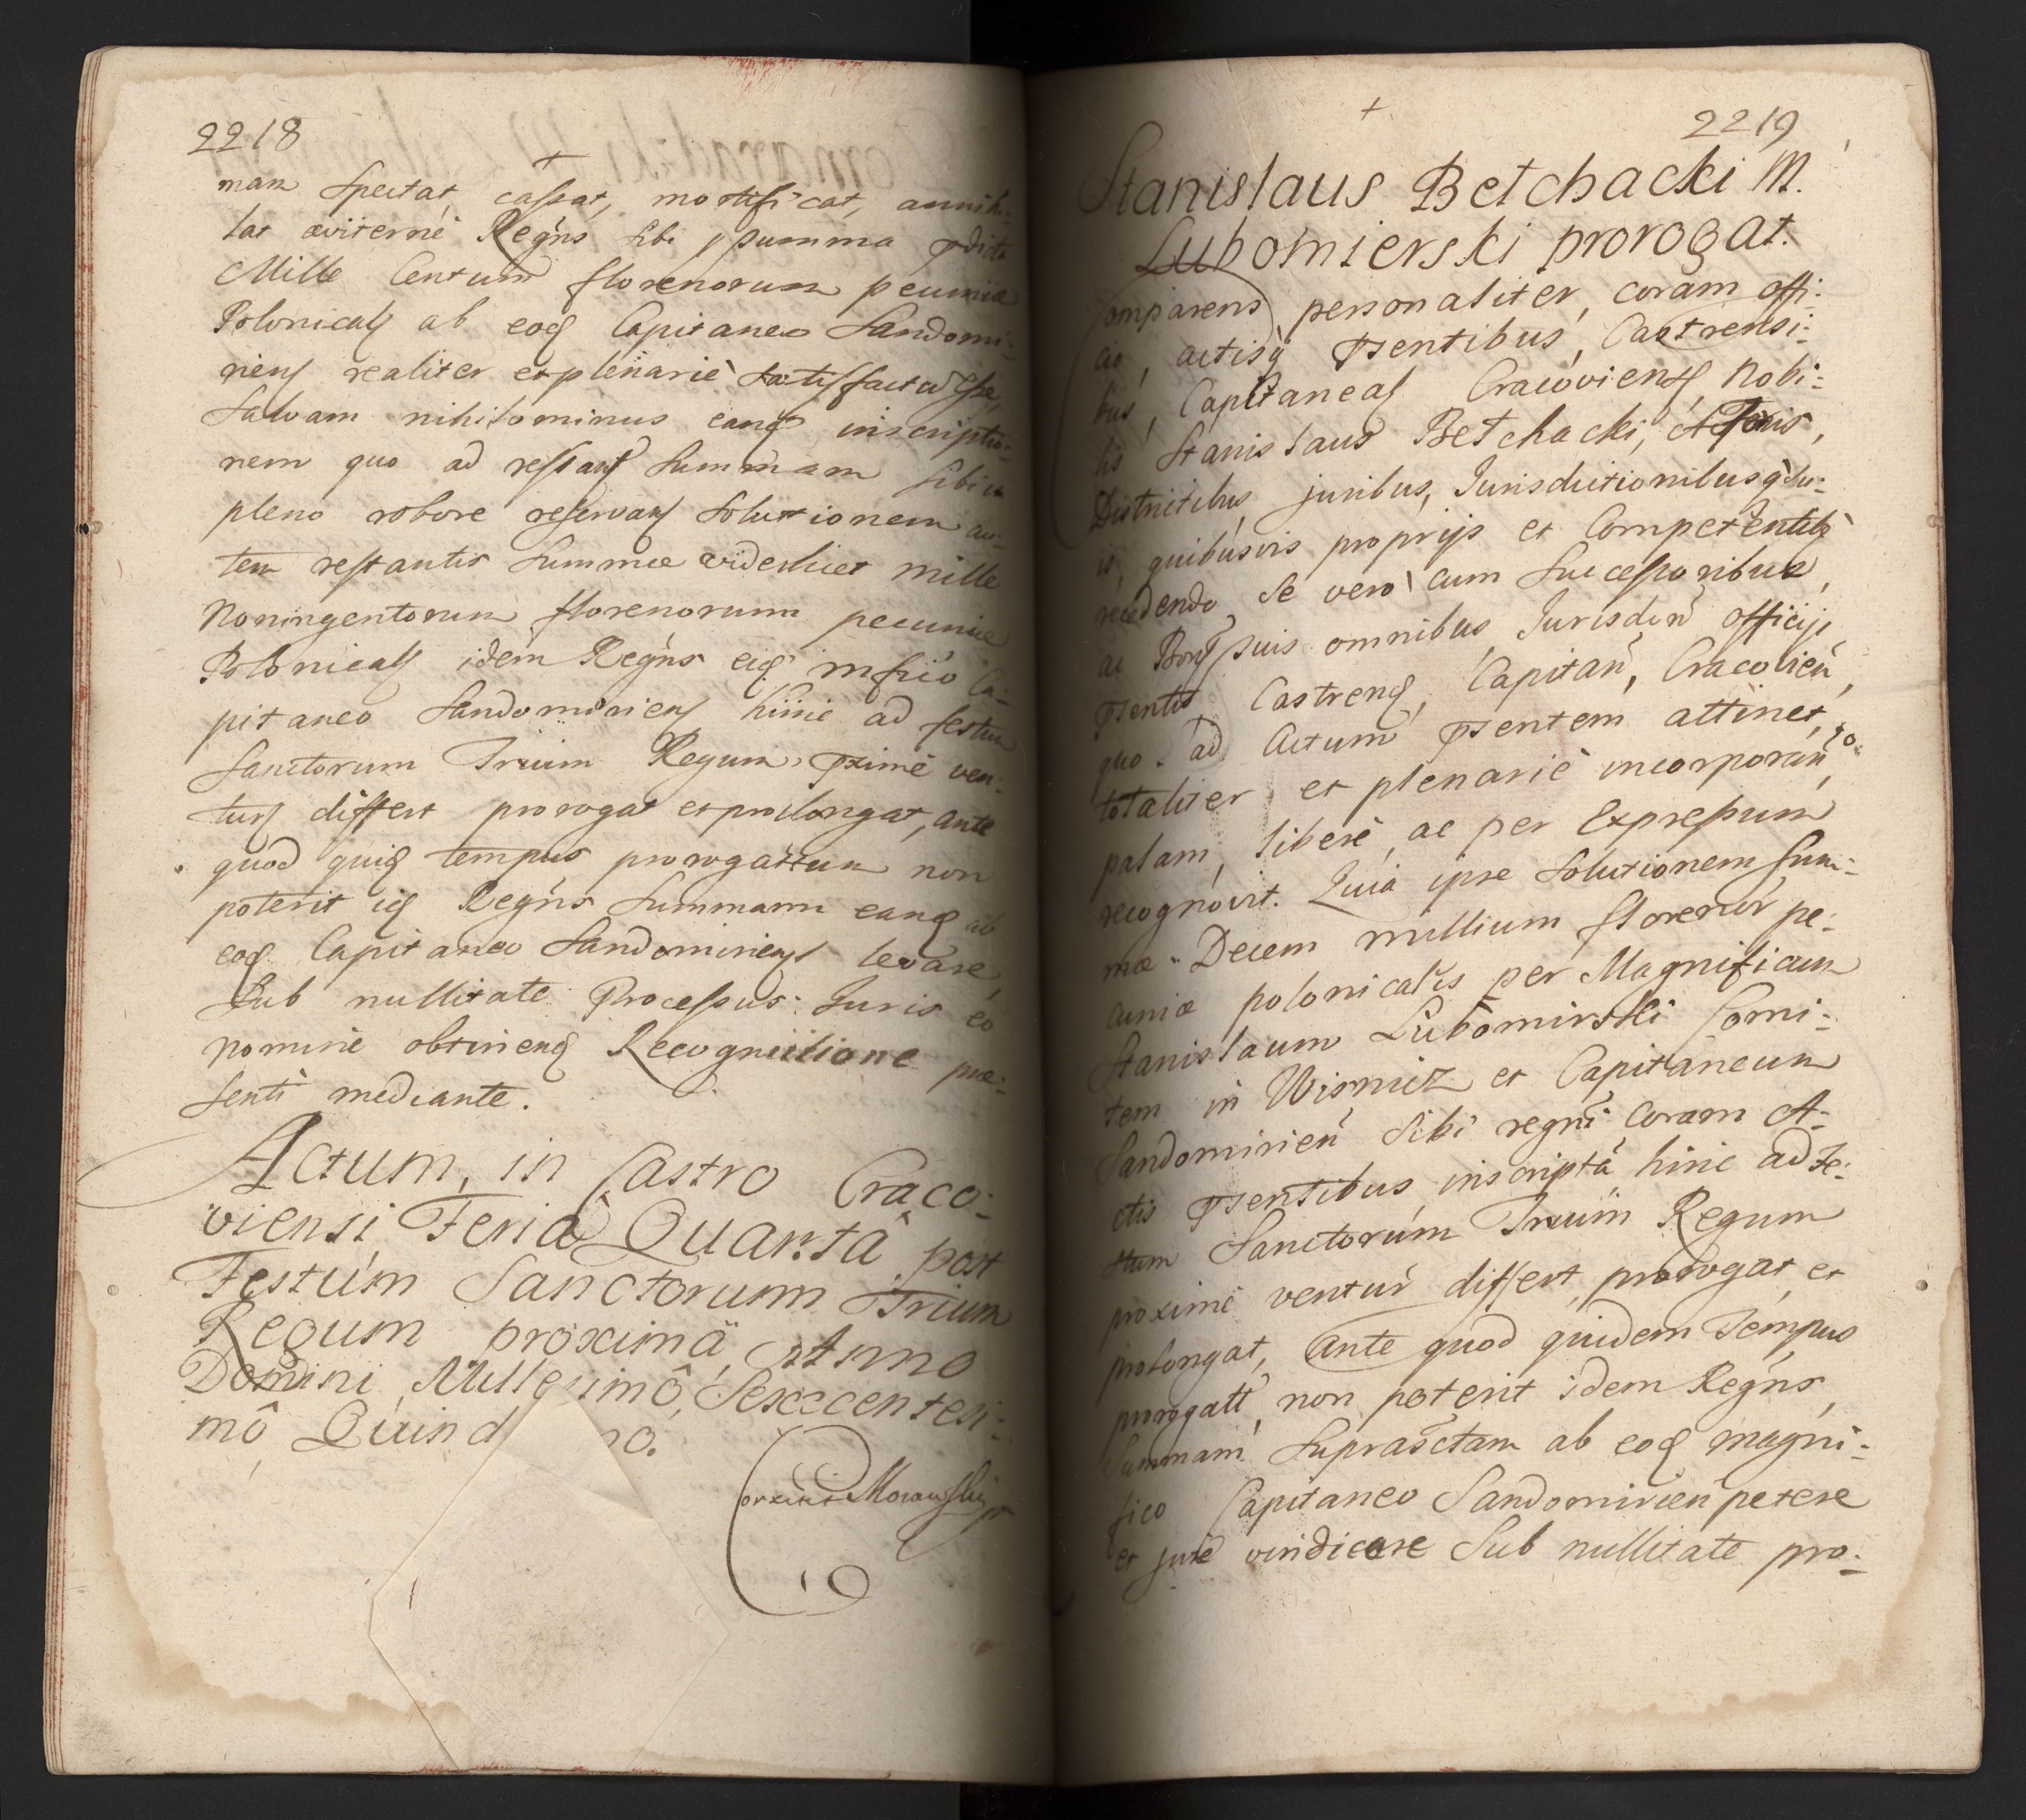 2218
man spectat, cassat, mortificat, annihi-
lat æviternè Regns sibi p summa pdicta
Mille Centum florenorum pecuniæ
Polonicals ab eoq Capitaneo Sandomi-
riens realiter et plenariè satisfactũ esse,
salvam nihilominus eanq inscriptio-
nem quo ad restans summam sibi in
pleno robore reservans solutionem au-
tem restantis summæ videlicet mille
Noningentorum florenorum pecuniæ
Polonicals idem Regns eiq mfico Ca-
pitaneo Sandomiriens hinc ad festum
Sanctorum Trium Regum pximè ven-
turs differt prorogat et prolongat, ante
quod quiq tempus prorogattum non
poterit iq Regns summam eanq ab
eoq Capitaneo Sandomiriens levare,
sub nullitate Processus Iuris eo
nomine obtinenq Recognitione præ-
senti mediante.
Actum, in Castro Craco-
viensi Feria Quarta post
Festum Sanctorum Trium
Regum proxima, Anno
Domini Millesimô, Sexcentesi-
mô Quind no.
Morawski
2219
Stanislaus Betchacki M.
Lubomierski prorogat.
Comparens personaliter, coram offi-
cio, actisq psentibus, Castrensi-
bus, Capitaneals Cracoviens Nobi-
lis Stanislaus Betchacki, à Foris,
Districtibus juribus, Iurisdictionibusq su-
is, quibusvis proprijs et Competentib
recedendo se vero cum successoribus,
ac Bons suis omnibus Iurisdin officij
psentis Castrens, Capitan, Cracovien,
quo ad Actum psentem attinet,
totaliter et plenariè incorporan,
palam, liberè, ac per Expressum
recognovit. Quia ipse solutionem sum-
mæ Decem millium florenor pe-
cuniæ polonicalis per Magnificum
Stanislaum Lubomirski Comi-
tem in Wisnicz et Capitaneum
Sandomirien sibi regnti Coram A-
ctis psentibus inscriptâ hinc ad Fe-
stum Sanctorum Trium Regum
proximè ventur differt, prorogat, et
prolongat, Ante quod quidem Tempus
prorogatt, non poterit idem Regns,
Summam Suprasctam ab eoq magni-
fico Capitaneo Sandomirien petere
et jurè vindicare Sub nullitate pro-